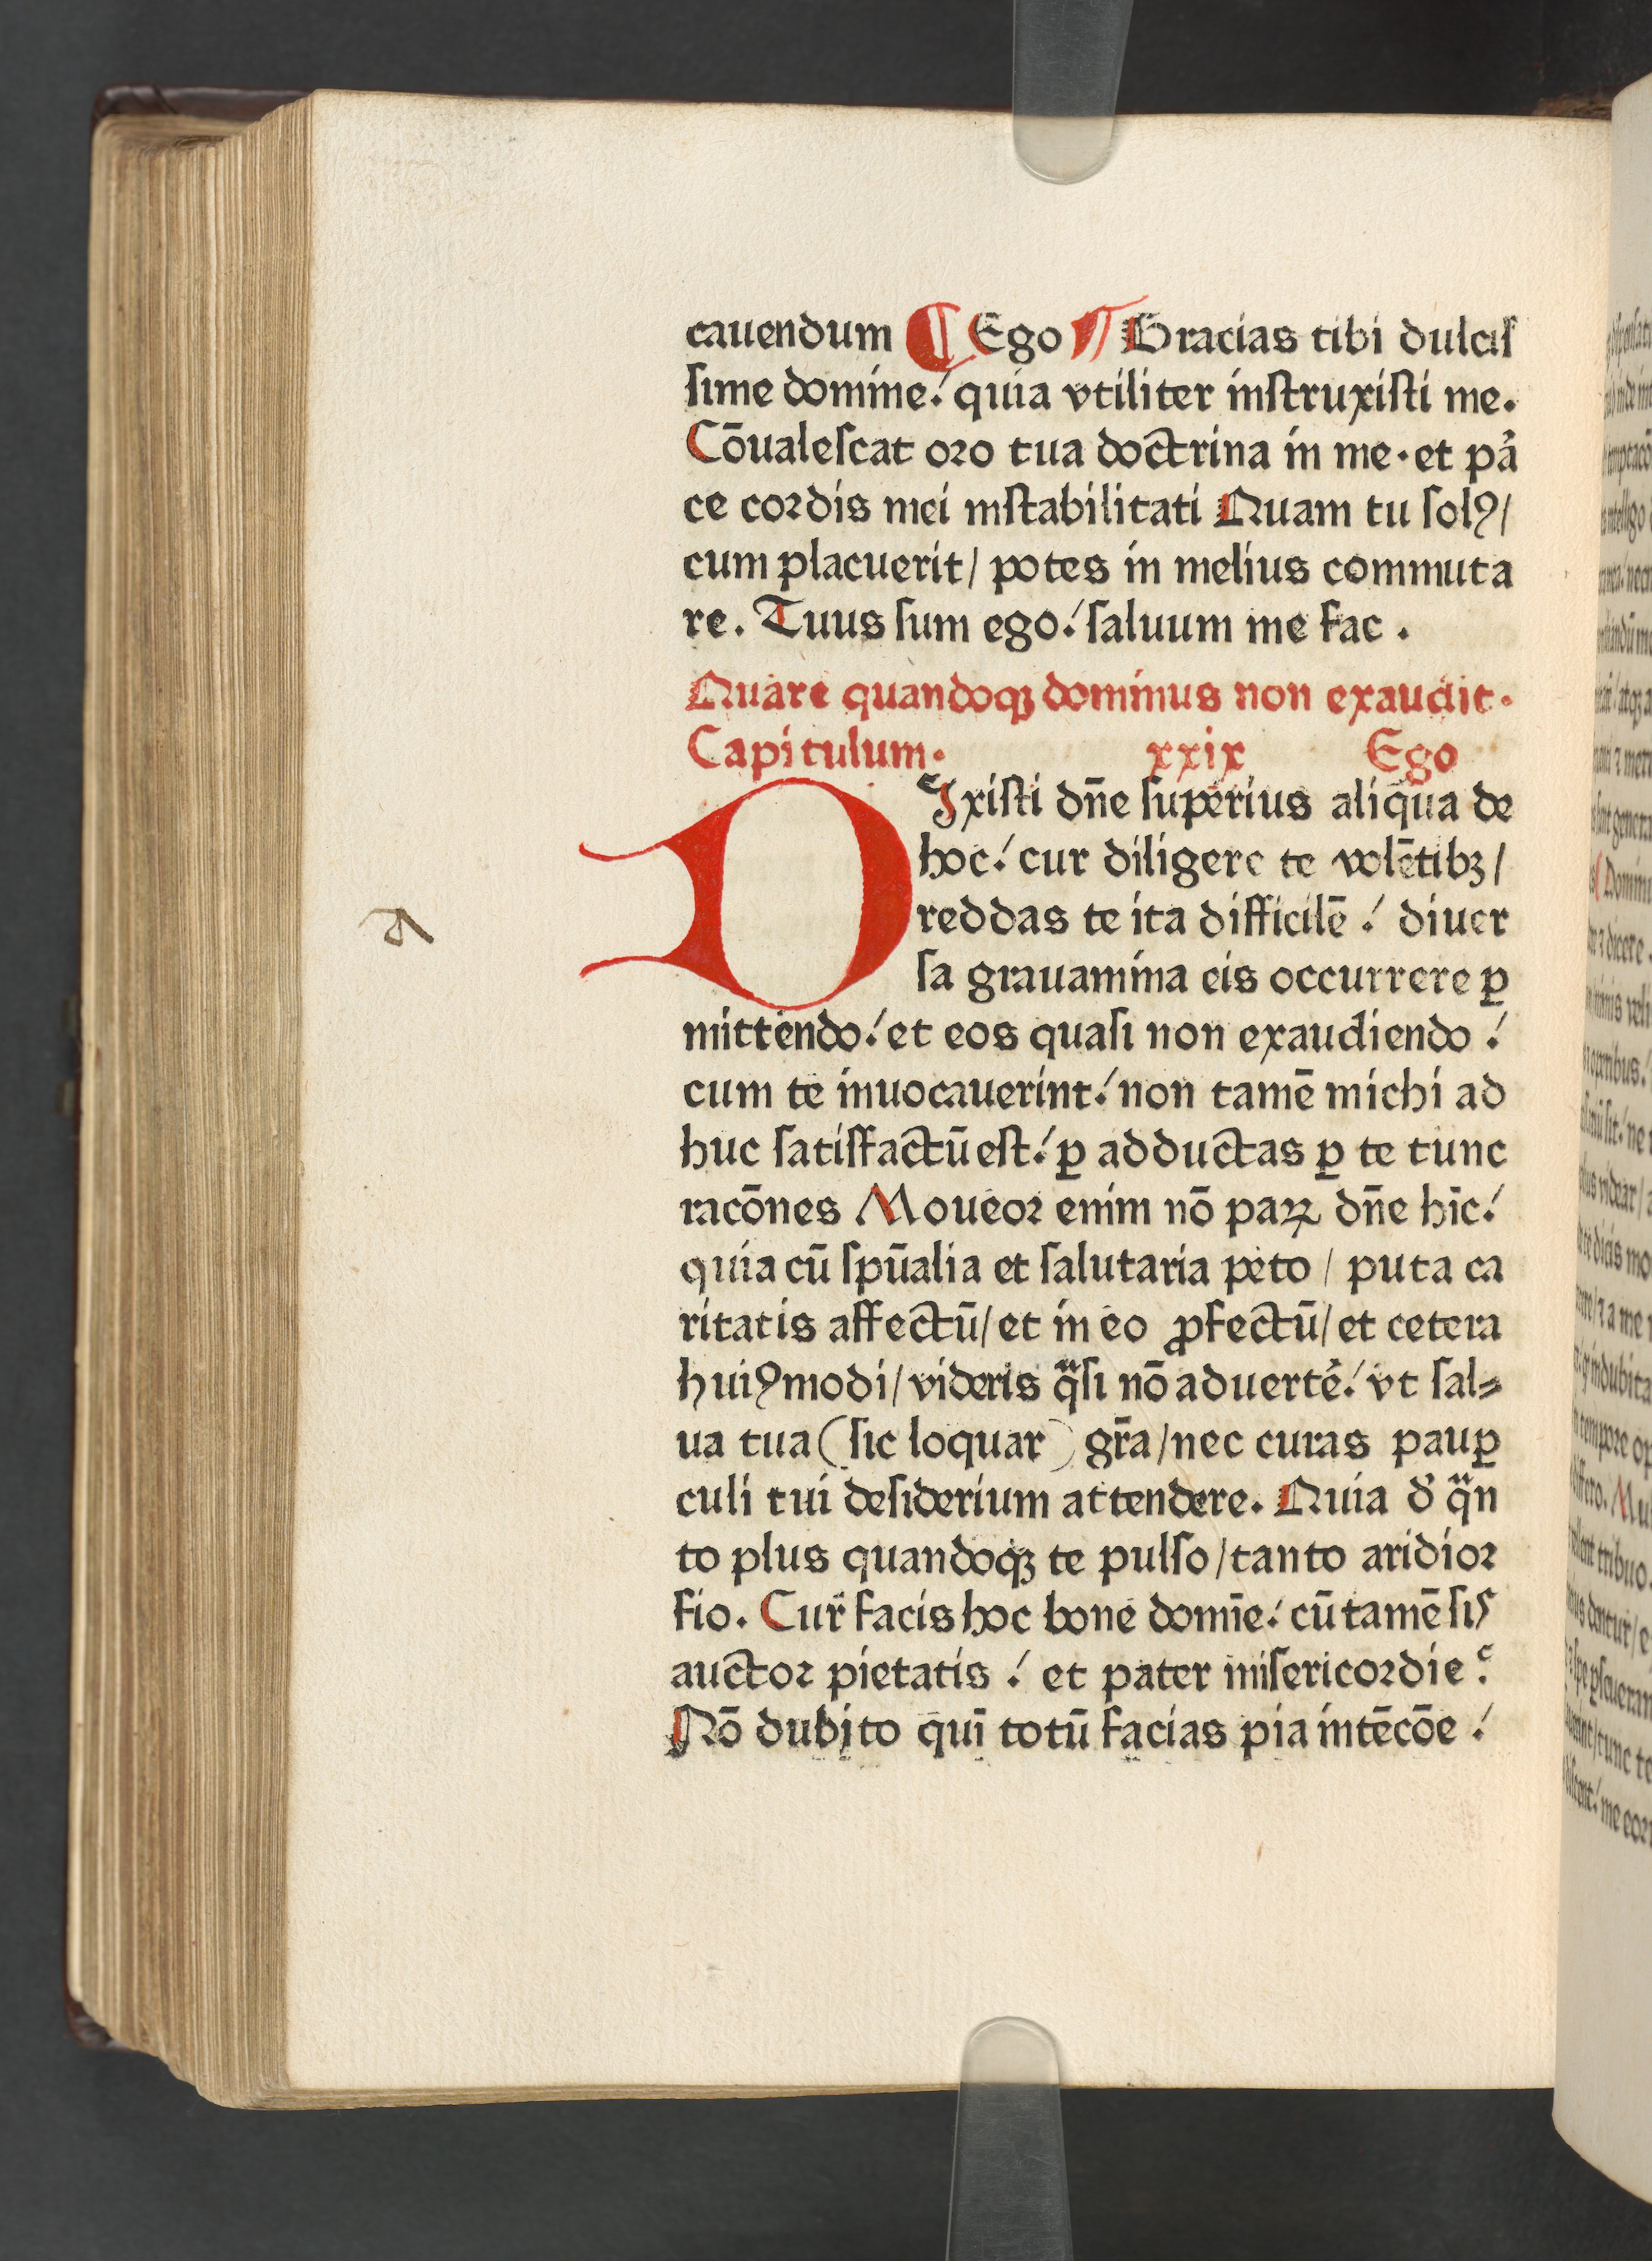 cauendum ¶ Ego ¶ Gracias tibi dulciſ
ſime domine/ quia vtiliter inſtruxiſti me.
Cōualeſcat oro tua doctrina in me · et pa
ce cordis mei inſtabilitati Quam tu ſolꝰ/
cum placuerit/ potes in melius commuta
re. Tuus ſum ego/ ſaluum me fac .
Quare quandoqꝫ dominus non exaudit.
Capitulum. xxix Ego
DIxiſti dn̄e ſuperius aliqua de
hoc/ cur diligere te volētibꝫ/
reddas te ita difficilē / diuer
ſa grauamina eis occurrere ꝑ
mittendo/ et eos quaſi non exaudiendo /
cum te inuocauerint/ non tamē michi ad
huc ſatiſfactū eſt/ ꝑ adductas ꝑ te tunc
racōnes Moueor enim nō paꝝ dn̄e hīc/
quia cū ſpūalia et ſalutaria peto / puta ca
ritatis affectū/ et in eo ꝓfectū/ et cetera
huiꝰmodi/ videris qͣſi nō aduert̄e/ vt ſal⸗
ua tua (ſic loquar) gr̄a/ nec curas pauꝑ
culi tui deſiderium attendere. Quia d' qͣn
to plus quandoqꝫ te pulſo/ tanto aridior
fio. Cur facis hoc bone domīe/ cū tamē ſis
auctor pietatis / et pater miſericordie ?
Nō dubito quī totū facias pia intēcōe /